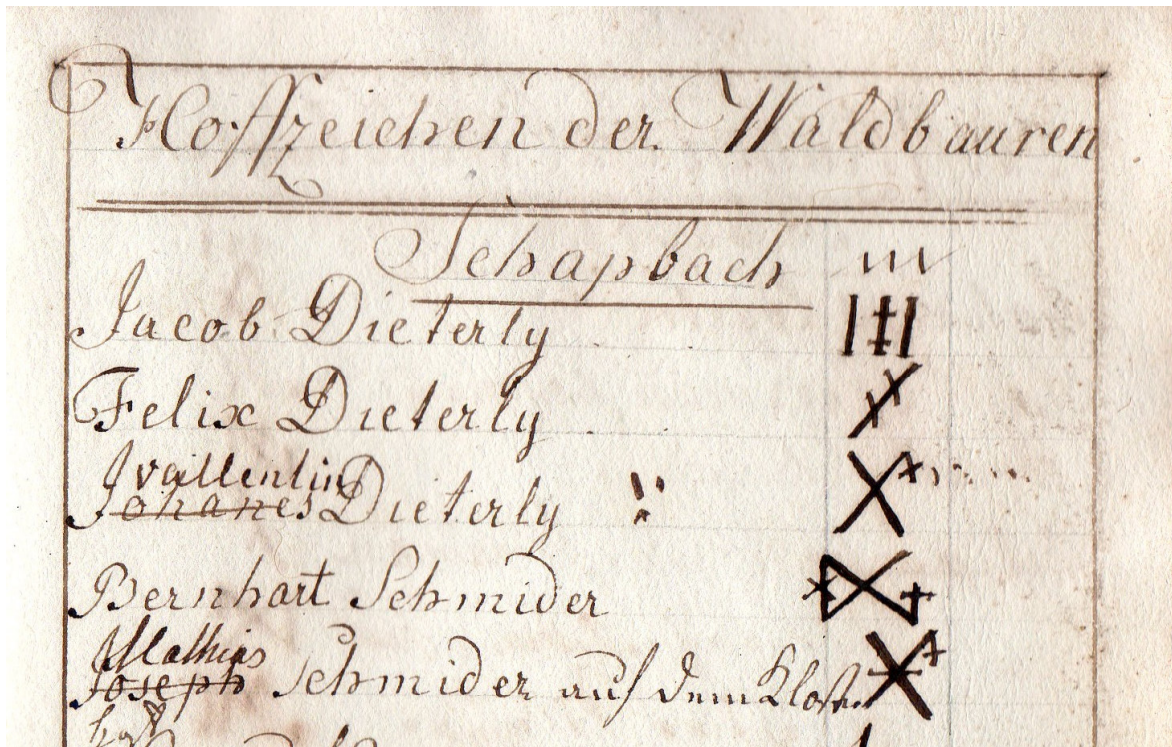 Hoffzeichen der Waldbauren
Schapbach
Jacob Dieterly
Felix Dieterly
vallentin
Johanes Dieterly
Bernhart Schmider
Mathias
Joseph Schmider auf dem